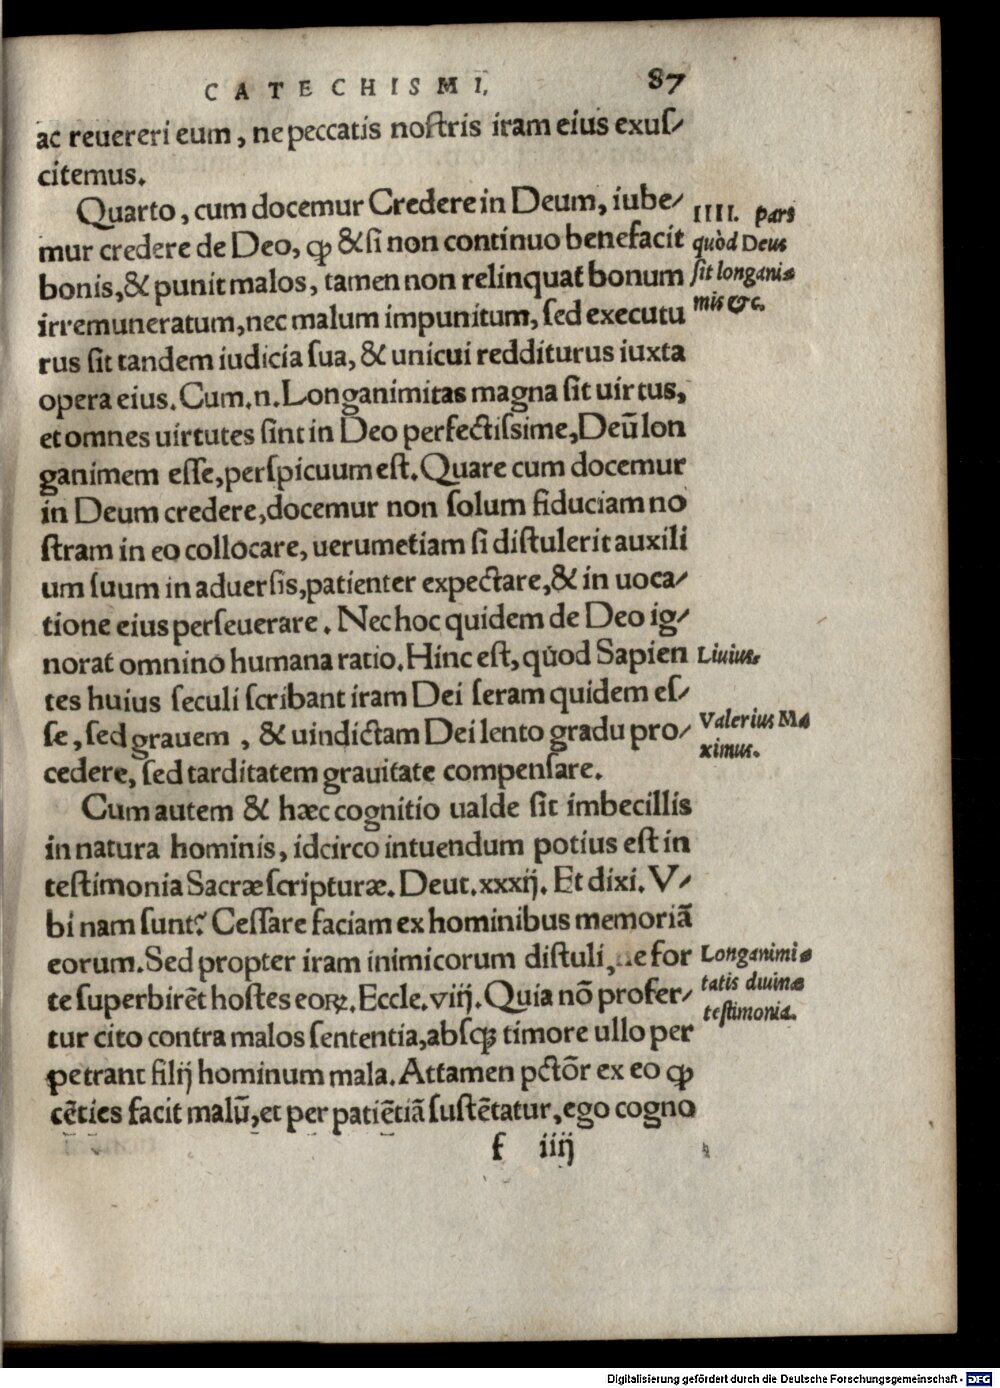 CATECHISMI, 87
ac reuereri eum, ne peccatis nostris iram eius exus⸗
citemus.
Quarto, cum docemur Credere in Deum, iube⸗
mur credere de Deo, ꝙ & si non continuo benefacit
bonis, & punit malos, tamen non relinquat bonum
irremuneratum, nec malum impunitum, sed executu
rus sit tandem iudicia sua, & unicui redditurus iuxta
opera eius. Cum.n. Longanimitas magna sit uirtus,
et omnes uirtutes sint in Deo perfectissime, Deū lon
ganimem esse, perspicuum est. Quare cum docemur
in Deum credere, docemur non solum fiduciam no
stram in eo collocare, uerumetiam si distulerit auxili
um suum in aduersis, patienter expectare, & in uoca⸗
tione eius perseuerare. Nec hoc quidem de Deo ig⸗
norat omnino humana ratio. Hinc est, quòd Sapien
tes huius seculi scribant iram Dei seram quidem es⸗
se, sed grauem, & uindictam Dei lento gradu pro⸗
cedere, sed tarditatem grauitate compensare.
Cum autem & hæc cognitio ualde sit imbecillis
in natura hominis, idcirco intuendum potius est in
testimonia Sacræ scripturæ. Deut. xxxij. Et dixi. V⸗
bi nam sunt? Cessare faciam ex hominibus memoriā
eorum. Sed propter iram inimicorum distuli, ne for
te superbirēt hostes eoꝝ. Eccle. viij. Quia nō profer⸗
tur cito contra malos sententia, absꝗ timore ullo per
petrant filij hominum mala. Attamen pctōr ex eo ꝙ
cēties facit malū, et per patiētiā sustētatur, ego cogno
f iiij
IIII. pars
quòd Deus
sit longani⸗
mis &c.
Liuius.
Valerius Ma
ximus.
Longanimi⸗
tatis diuinæ
testimonia.
Digitalisierung gefördert durch die Deutsche Forschungsgemeinschaft - DFG